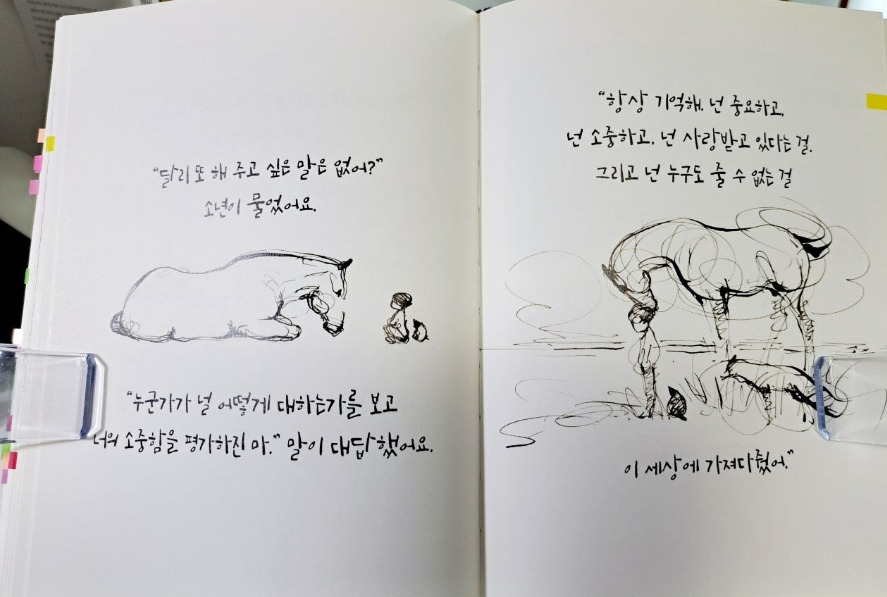 "달리 또 해 주고 싶은 말은 없어?"
소년이 물었어요.
"누군가가 널 어떻게 대하는가를 보고
너의 소중함을 평가하진 마." 말이 대답했어요.
"항상 기억해. 넌 중요하고,
넌 소중하고, 넌 사랑받고 있다는 걸.
그리고 넌 누구도 줄 수 없는 걸
이 세상에 가져다줬어."